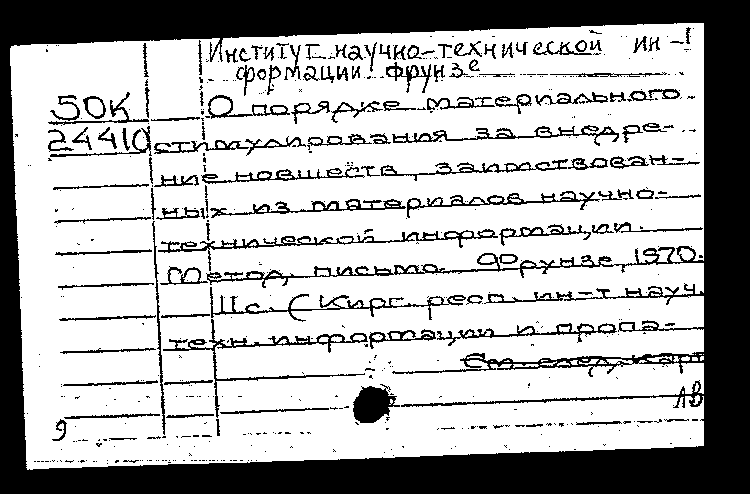 Институт научно-технической ин-
формации. Фрунзе
50К О порядке материального
24410 стимулирования за внедре-
ние новшеств, заимствован-
ных из материалов научно-
технической информации.
Метод. письмо. Фрунзе, 1970.
11с. (Кирг. респ. ин-т науч.
техн. информации и пропа-
См. след. карт
ЛВ
9